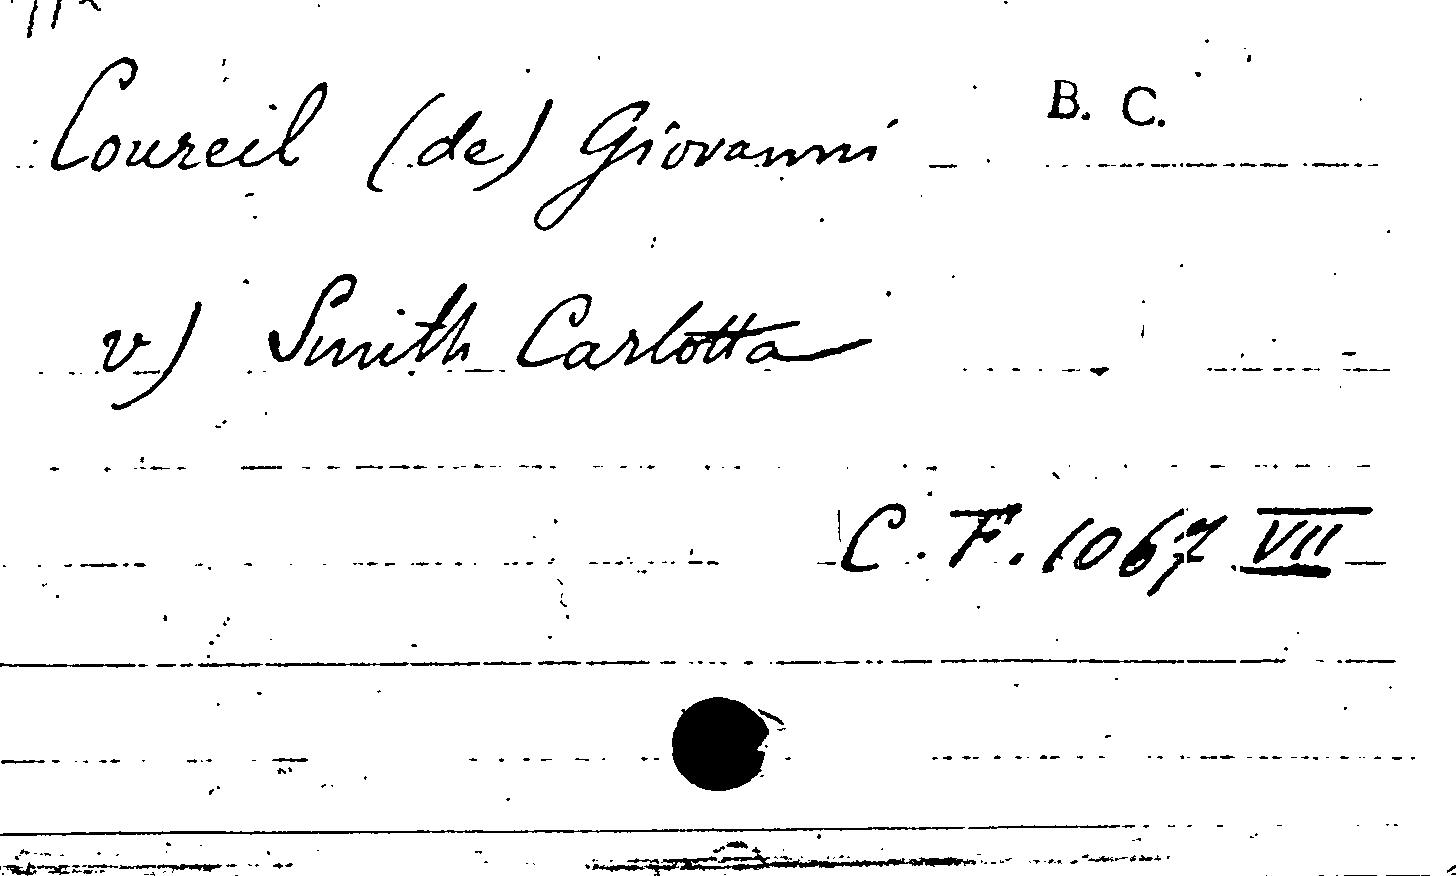 Coureil (de) Giovanni B. C.
v) Smith Carlotta
C. F. 1067 VII